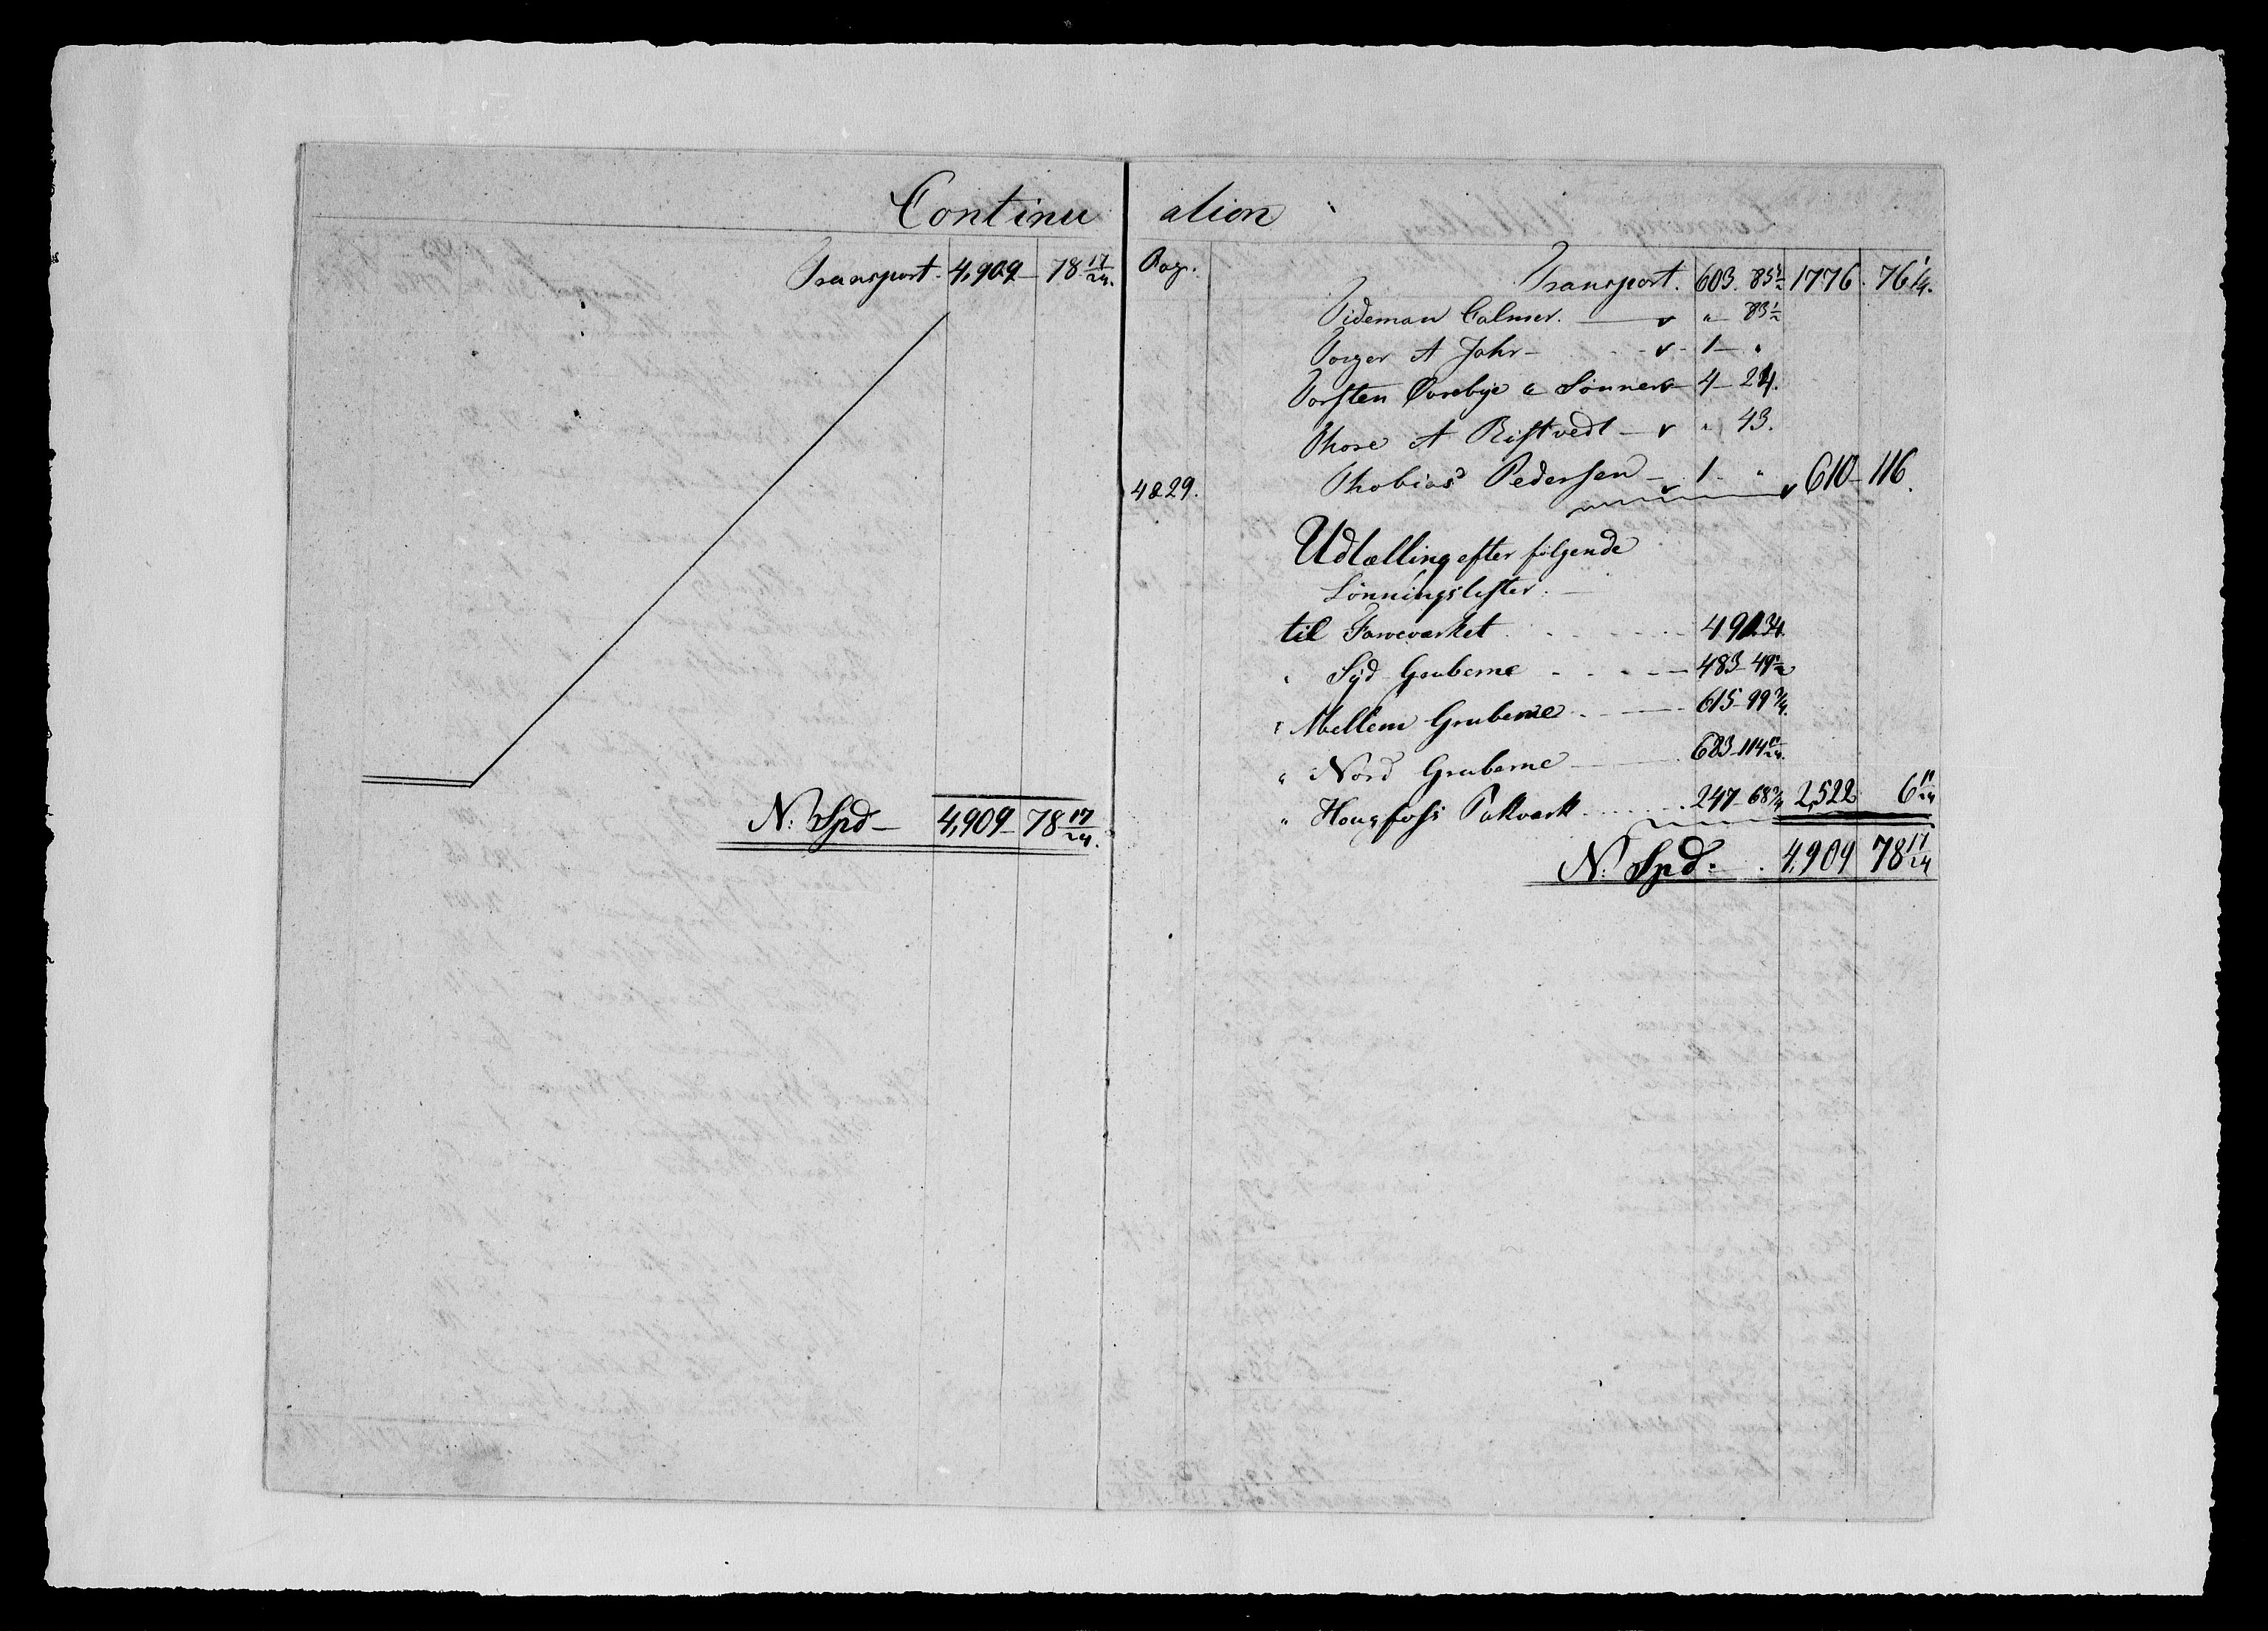 Continu ation
Transport. 4,909 – 78 17/24.
N: Spd – 4,909 – 78 17/24.
Pag.
Transport. 603. 85 1/2 1776. 76 1/4.
Tideman Calmer. — v " – 83 1/2
Torger A Jahr – v – 1 – "
Torsten & Sønner 4 – 24.
Thore A Ristvedt – v " 43.
4829. Thobias Pedersen – v 1. " v 610 – 116.
Udtælling efter følgende
Lønningslister. –
til Farveværket 491 34.
" Syd Gruberne 483 – 49 1/2
" Mellem Gruberne 615 – 99 3/4.
" Nord Gruberne 683 – 114 11/24.
" Hougfoss Pukværk 247 – 68 3/4 2,522 6 11/24
N: Spd. 4,909 78 17/24